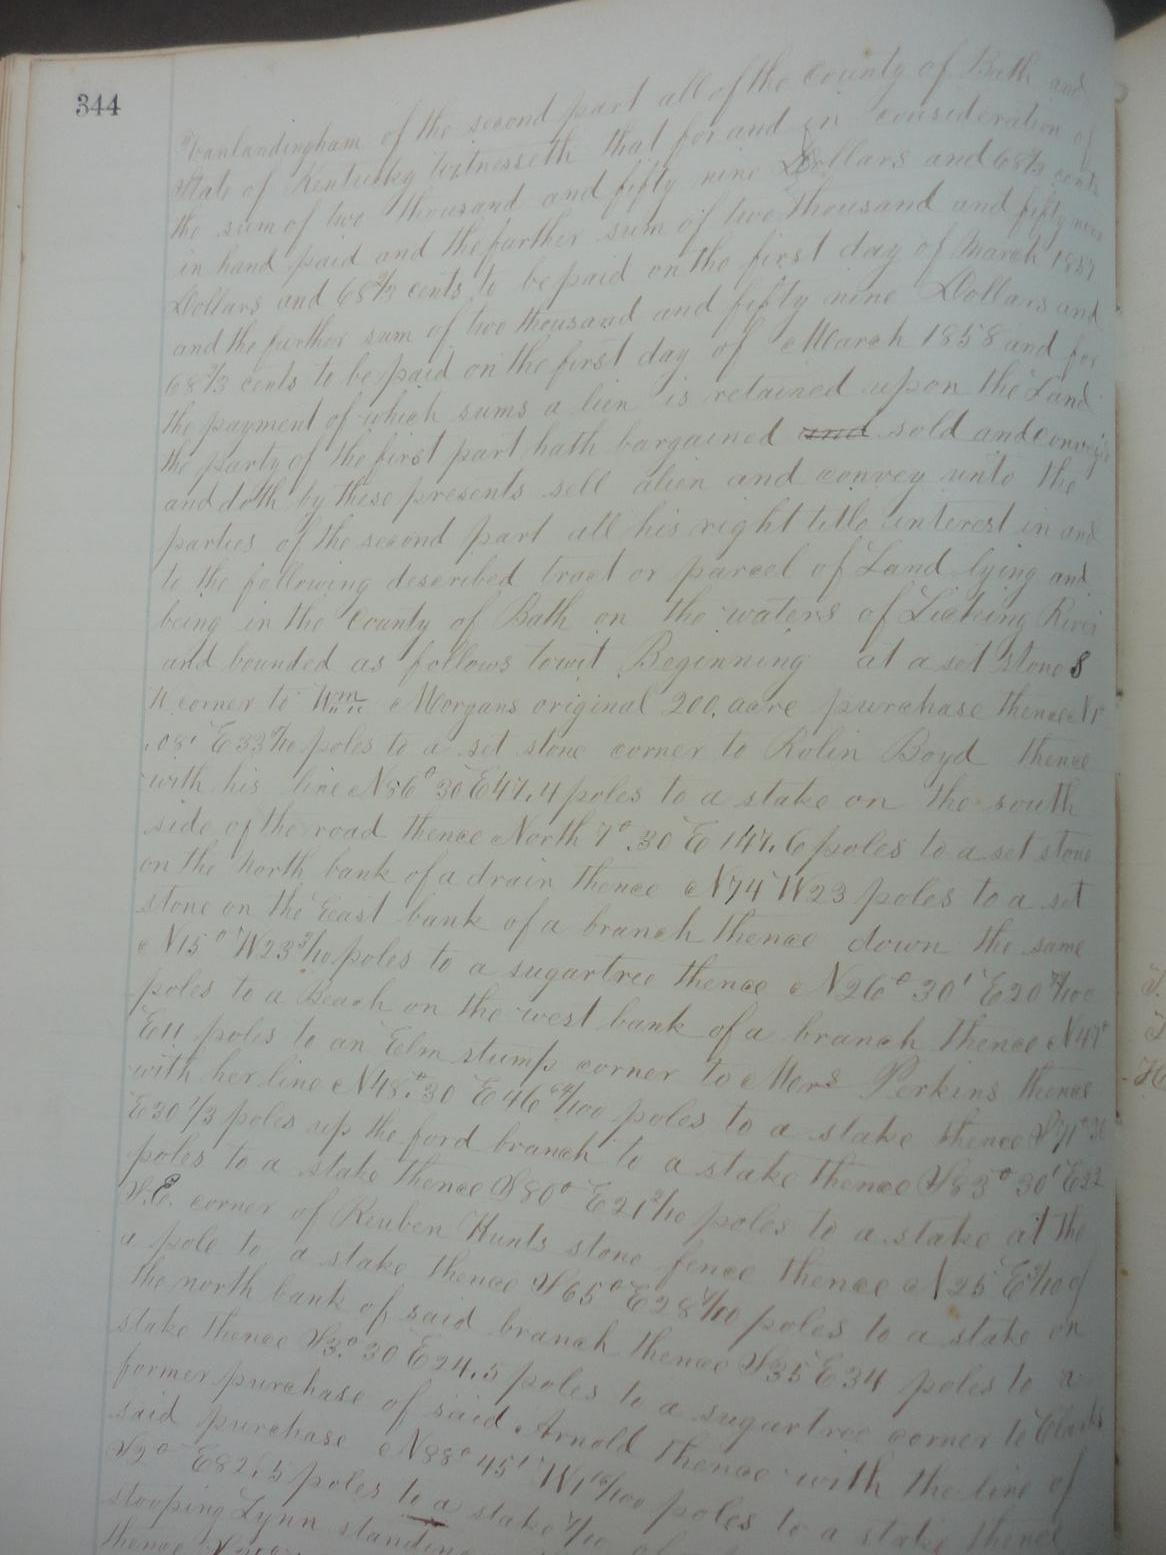 344
Vanlandingham of the second part all of the County of Bath and
State of Kentucky Witnesseth that for and in consideration of
the sum of two thousand and fifty nine Dollars and 68⅔ cents
in hand paid and the further sum of two thousand and fifty nine
Dollars and 68⅔ cents to be paid on the first day of March 1857
and the further sum of two thousand and fifty nine Dollars and
68⅔ cents to be paid on the first day of March 1858 and for
the payment of which sums a lien is retained upon the Land
the party of the first part hath bargained and sold and conveys
and doth by these presents sell alien and convey unto the
parties of the second part all his right title interest in and
to the following described tract or parcel of Land lying and
being in the County of Bath on the waters of Licking River
and bounded as follows towit Beginning at a set stone S
W corner to Wm Morgans original 200, acre purchase thence N
08' E 33 poles to a set stone corner to Rolin Boyd thence
with his line N86° 30 E 47.4 poles to a stake on the south
side of the road thence North 7°.30 E 147.6 poles to a set stone
on the North bank of a drain thence N74 W 23 poles to a set
stone on the East bank of a branch thence down the same
N15° W 23 3/10 poles to a sugartree thence N26° 30' E 20
poles to a Beach on the west bank of a branch thence N47°
E 11 poles to an Elm stump corner to Mers Perkins thence
with her line N48°.30 E 46 64/100 poles to a stake thence S71° 30
E 30 1/3 poles up the ford branch to a stake thence S83° 30' E 22
poles to a stake thence S80° E 21 2/10 poles to a stake at the
S.E. corner of Reuben Hunts stone fence thence N25 E of
a pole to a stake thence S65° E 28 poles to a stake on
the north bank of said branch thence S35 E 34 poles to a
stake thence S3.° 30 E 24.5 poles to a sugartree corner to Clarks
former purchase of said Arnold thence with the line of
said purchase N88° 45' W poles to a stake thence
S2° E 82.5 poles to a stake of
stooping Lynn standing
thence